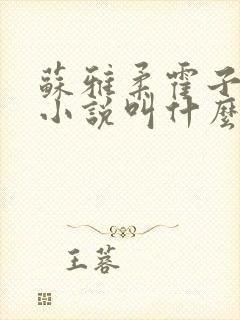 蘇雅柔霍子
小說叫什麼
王蓉